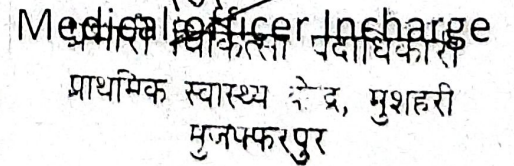 Medical officer Incharge
प्रभारी चिकित्सा पदाधिकारी
प्राथमिक स्वास्थ्य केंद्र, मुशहरी
मुजफ्फरपुर